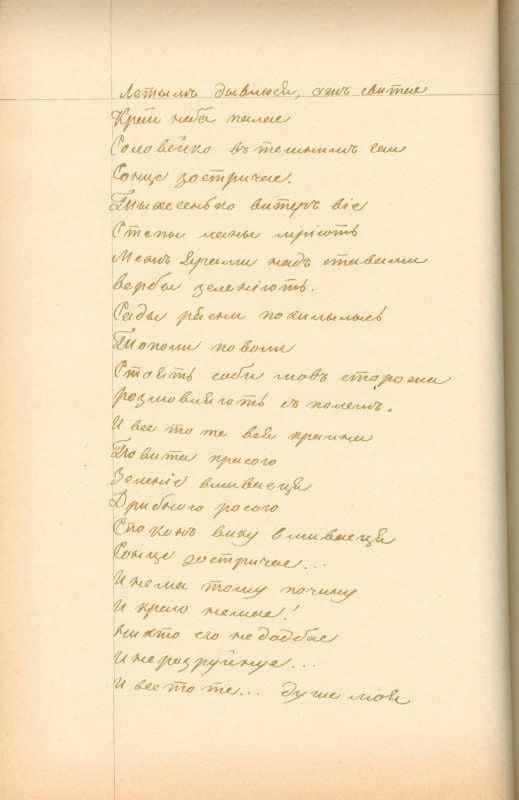 Летымъ дывлюся, ажъ свитае
Край неба палае
Соловейко въ темнимъ гаи
Сонце зостричае.
Тыхесенько витеръ віе
Степы ланы мріютъ
Межъ Ярами надъ ставами
вербы зеленіютъ.
Сады рясни похилылысь
Тополи поволи
Стоятъ соби мовъ сторожа
розмовляютъ съ полемъ.
И все то те вся краина
Повита красою
Зеленіе вмываеця
Дрибною росою
Споконъ вику вмываеця
Сонце зостричае...
И нема тому почину
И краю немае!
никто его не додбае
И не розруйнуе...
И все то те... душе моя